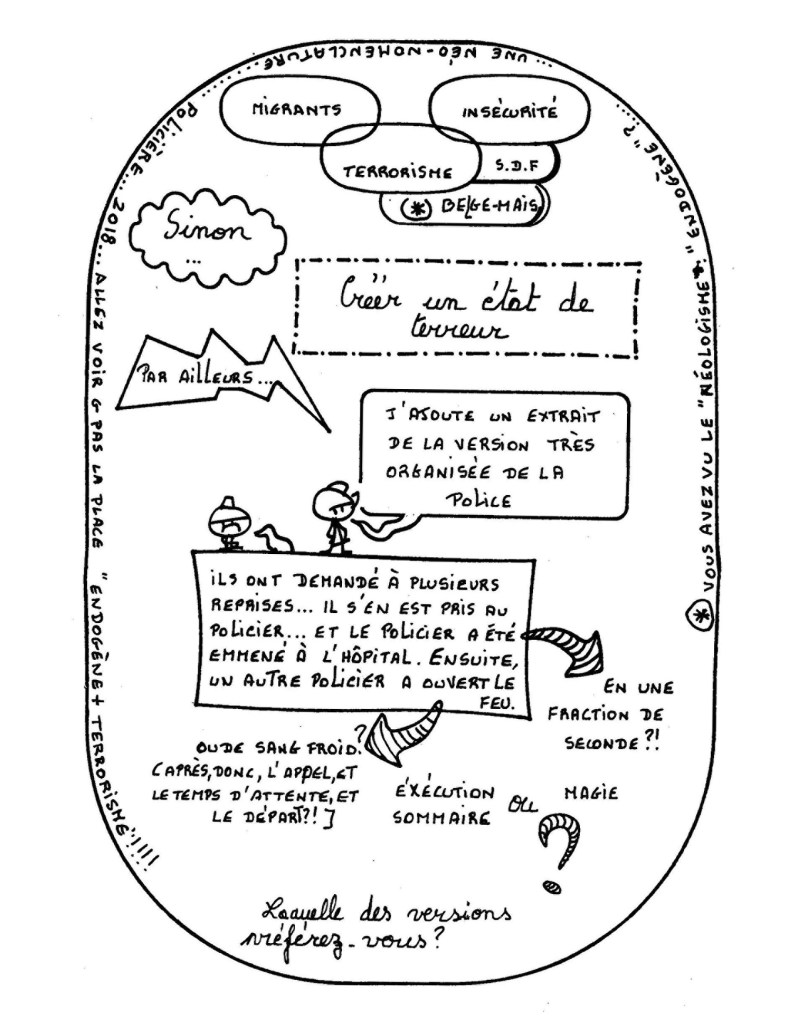 MIGRANTS
INSÉCURITÉ
TERRORISME
S.D.F
(*) BELGE-MAIS
Sinon
...
Créër un état de
terreur
PAR AILLEURS...
J'AJOUTE UN EXTRAIT
DE LA VERSION TRÈS
ORGANISÉE DE LA
POLICE
ILS ONT DEMANDÉ À PLUSIEURS
REPRISES... IL S'EN EST PRIS AU
POLICIER... ET LE POLICIER A ÉTÉ
EMMENÉ À L'HÔPITAL. ENSUITE,
UN AUTRE POLICIER A OUVERT LE
FEU.
EN UNE
FRACTION DE
SECONDE?!
OU DE SANG FROID?
(APRÈS, DONC, L'APPEL, ET
LE TEMPS D'ATTENTE, ET
LE DÉPART?!]
ÉXÉCUTION
SOMMAIRE
OU
MAGIE
?
Laquelle des versions
préférez-vous?
* VOUS AVEZ VU LE "NÉOLOGISME": "ENDOGÈNE"? ... UNE NÉO-NOMENCLATURE ... POLICIÈRE... 2018... ALLEZ VOIR G PAS LA PLACE "ENDOGÈNE + TERRORISME"!!!!